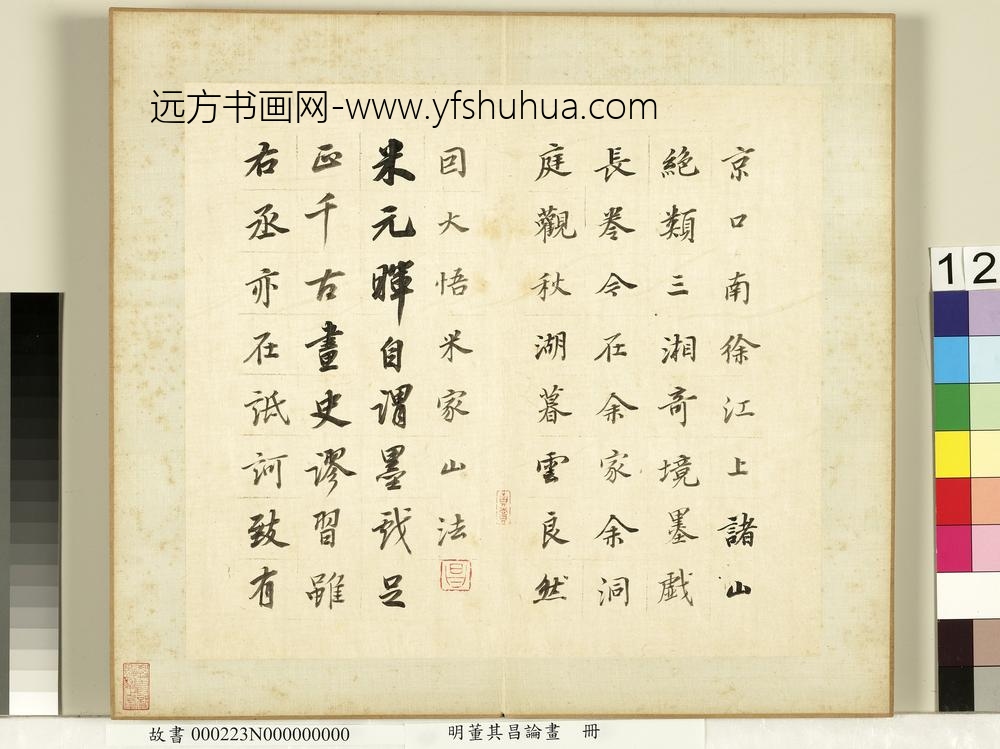 远方书画网-www.yfshuhua.com
京口南徐江上諸山
絶類三湘奇境墨戲
長卷今在余家余洞
庭觀秋湖暮雲良然
因大悟米家山法
米元暉自謂墨戲足
正千古畫史謬習雖
右丞亦在詆訶致有
故書 000223N000000000
明董其昌論畫 冊
1 2